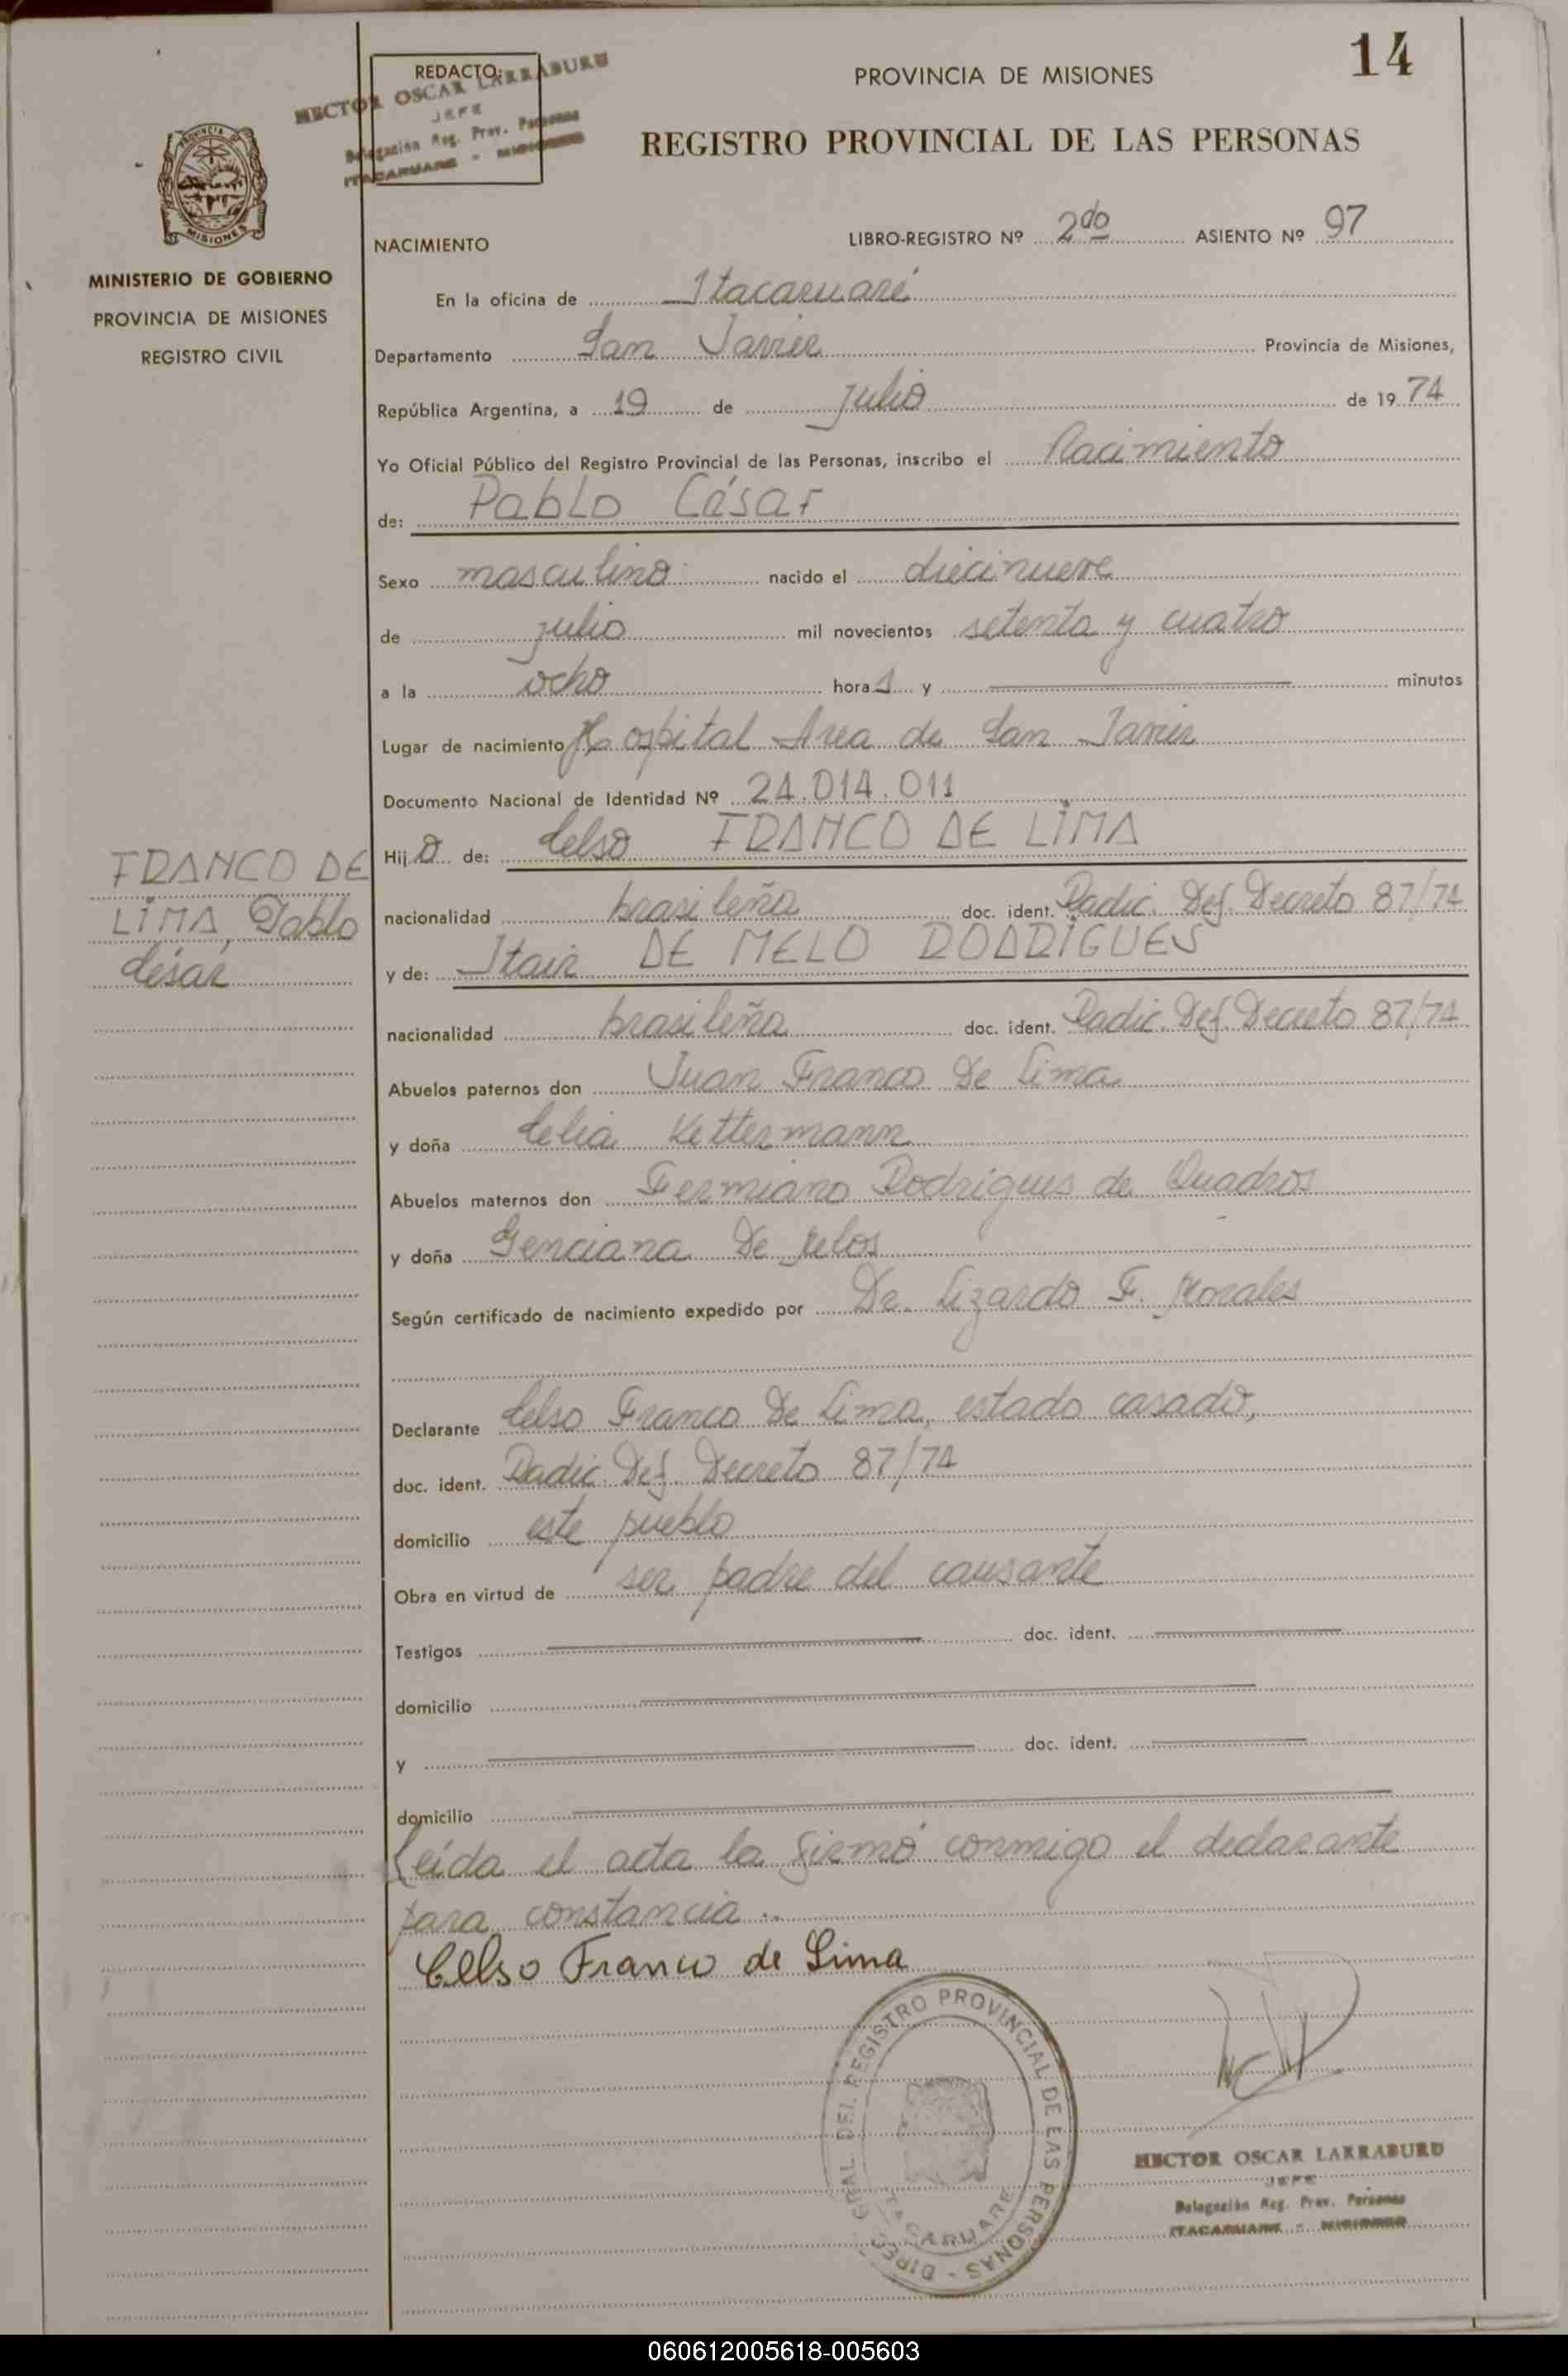 14
REDACTO:
HECTOR OSCAR LARRABURU
JEFE
Delegación Reg. Prov. Personas
ITACARUARE - MISIONES
PROVINCIA DE MISIONES
REGISTRO PROVINCIAL DE LAS PERSONAS
PROVINCIA DE
MISIONES
MINISTERIO DE GOBIERNO
PROVINCIA DE MISIONES
REGISTRO CIVIL
NACIMIENTO
LIBRO-REGISTRO Nº 2do ASIENTO Nº 97
En la oficina de Itacaruaré
Departamento San Javier Provincia de Misiones,
República Argentina, a 19 de julio de 1974
Yo Oficial Público del Registro Provincial de las Personas, inscribo el Nacimiento
de: Pablo César
Sexo masculino nacido el diecinueve
de julio mil novecientos setenta y cuatro
a la ocho horas y minutos
Lugar de nacimiento Hospital Area de San Javier
Documento Nacional de Identidad Nº 24.014.011
Hijo de: Celso FRANCO DE LIMA
FRANCO DE
LIMA, Pablo
César
nacionalidad brasileña doc. ident. Radic. Def. Decreto 87/74
y de: Itair DE MELO RODRIGUES
nacionalidad brasileña doc. ident. Radic. Def. Decreto 87/74
Abuelos paternos don Juan Franco De Lima
y doña Celia Kettermann
Abuelos maternos don Fermiano Rodrigues de Quadros
y doña Genciana De Melos
Según certificado de nacimiento expedido por Dr. Lizardo F. Morales
Declarante Celso Franco De Lima, estado casado,
doc. ident. Radic. Def. Decreto 87/74
domicilio este pueblo
Obra en virtud de ser padre del causante
Testigos doc. ident.
domicilio
y doc. ident.
domicilio
Leída el acta la firmó conmigo el declarante
para constancia..
Celso Franco de Lima
DIREC. GRAL. DEL REGISTRO PROVINCIAL DE LAS PERSONAS -
ITACARUARE
HECTOR OSCAR LARRABURU
JEFE
Delegación Reg. Prov. Personas
ITACARUARE - MISIONES
060612005618-005603